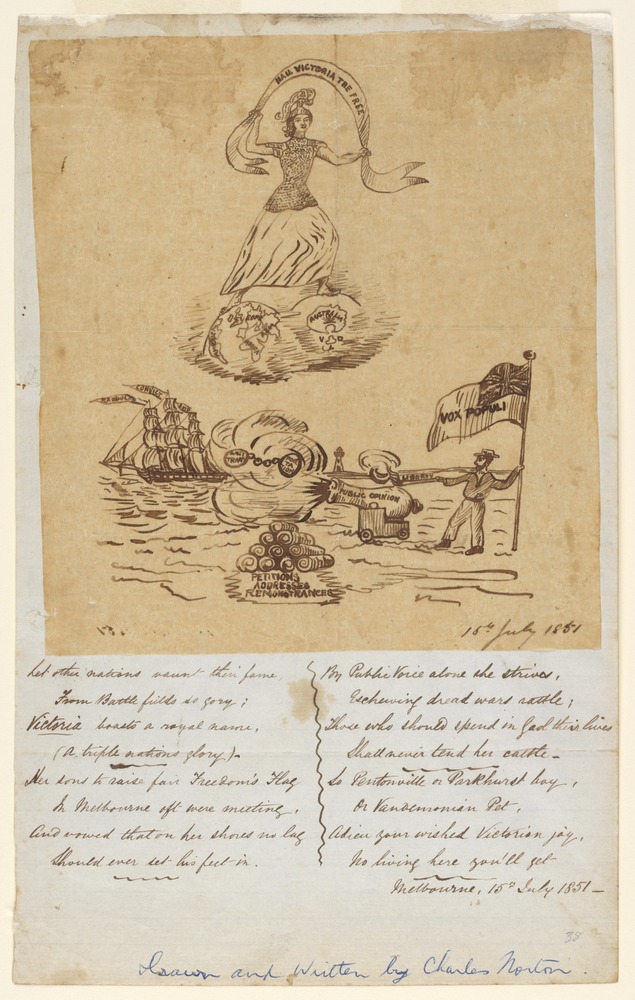 HAIL VICTORIA THE FREE
EUROPE
AFRICA
AUSTRALIA
V D
L
CONVICT
VOX POPULI
ANTI
TRAN
LIBERTY
PUBLIC OPINION
PETITIONS
ADDRESSES
REMONSTRANCES
15th July 1851
Let other nations vaunt their fame
From Battle fields so gory;
Victoria boasts a royal name,
(A triple nations glory)-
Her sons to raise fair Freedom's Flag
In Melbourne oft were meeting,
And vowed that on her shores no lag
Should ever set his feet in.
By Public Voice alone she strives,
Eschewing dread wars rattle;
Those who should spend in Gaol their lives
Shall never tend her cattle-
So Pentonville or Parkhurst boy,
Or Vandemonian Pet,
Adieu your wished Victorian joy,
No living here you'll get
Melbourne, 15th July 1851-
38
Drawn and Written by Charles Norton.